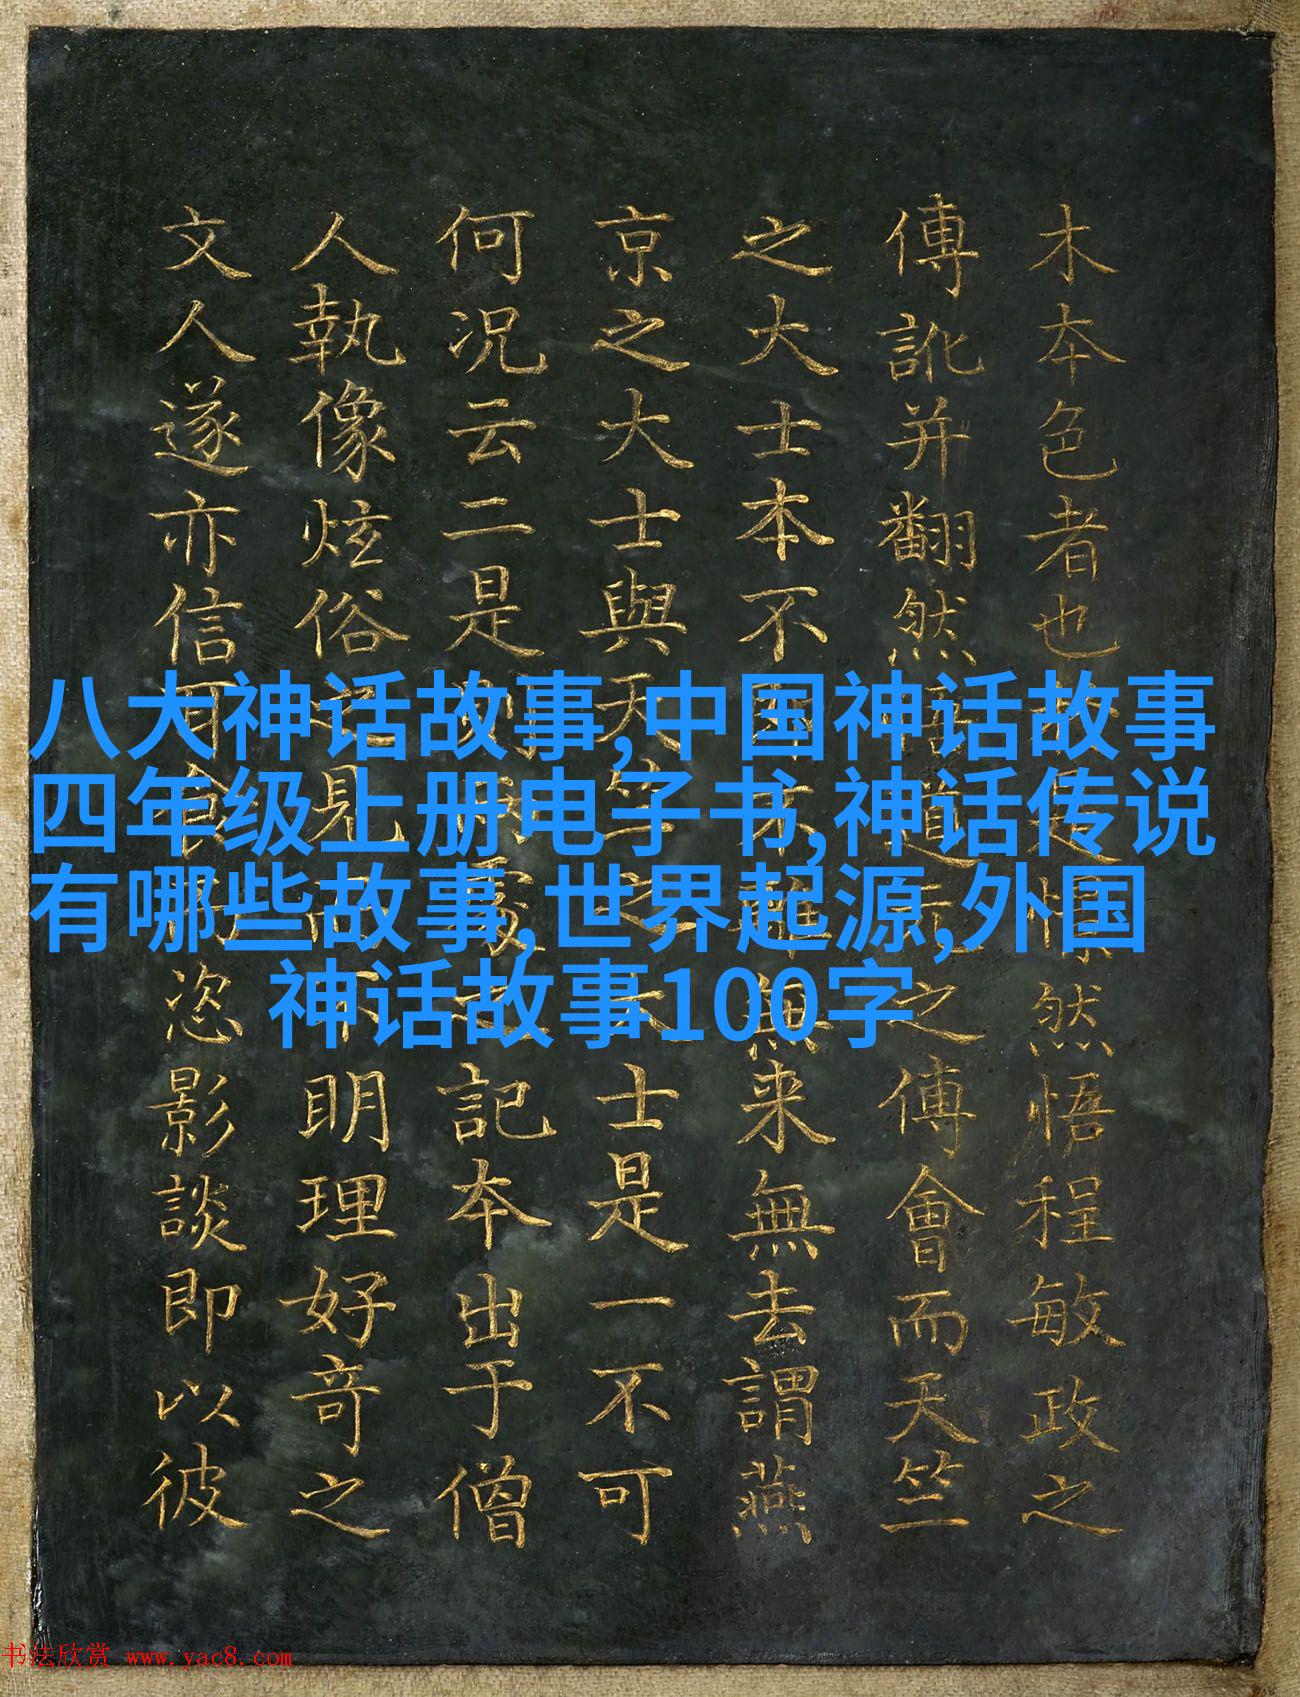 八大神话故事,中国神话故事
四年级上册电子书,神话传说
有哪些故事,世界起源,外国
神话故事100字
木夲色者也是然悟程敏政之
傅訛并翻然道之傅會而天竺
之大士本不離無来無去謂燕
京之大士與天竺之大士是一不可
何况云二是則記夲出于僧
人執像炫俗見不明理好竒之
文人遂亦信恣影談即以彼
书法欣赏 www.yac8.com